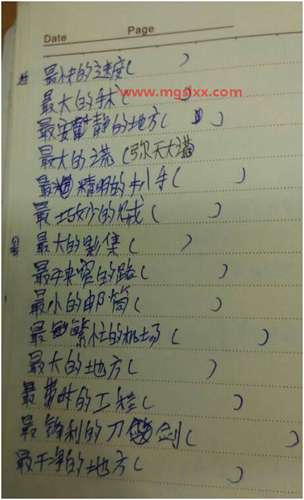 Date Page
最快的速度( )
www.mggxx.com
最大的手术( )
最安静的地方( )
最大的谎(弥天大谎
最精明的扒手( )
最巧妙的贼( )
最大的影集( )
最曲折的路( )
最小的邮筒( )
最繁忙的机场( )
最大的地方( )
最费时的工程( )
最锋利的刀剑( )
最干净的地方( )